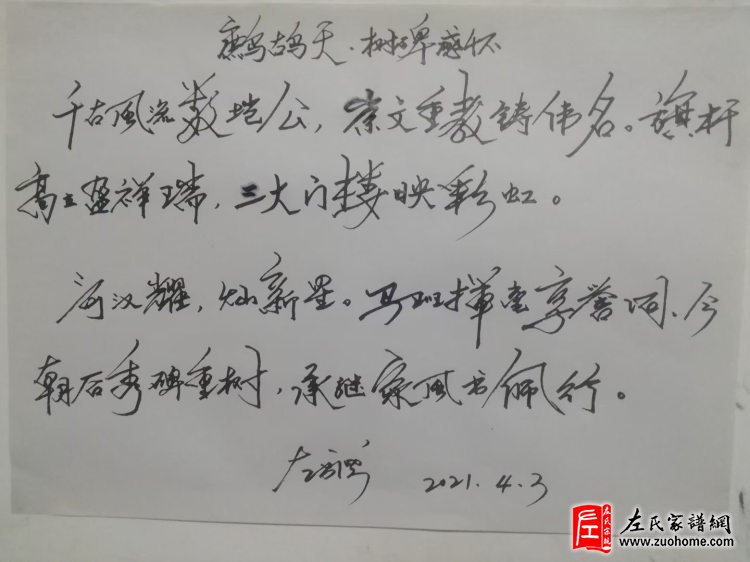 鹧鸪天·树碑感怀
千古風流数垲公，崇文重教铸伟名。旗杆
高立呈祥瑞，三大门楼映彩虹。
河汉耀，灿新星。马班挥笔享誉词、今
朝后秀碑重树，承继家风书佩行。
左 2021.4.3
左氏家譜網
www.zuohome.com